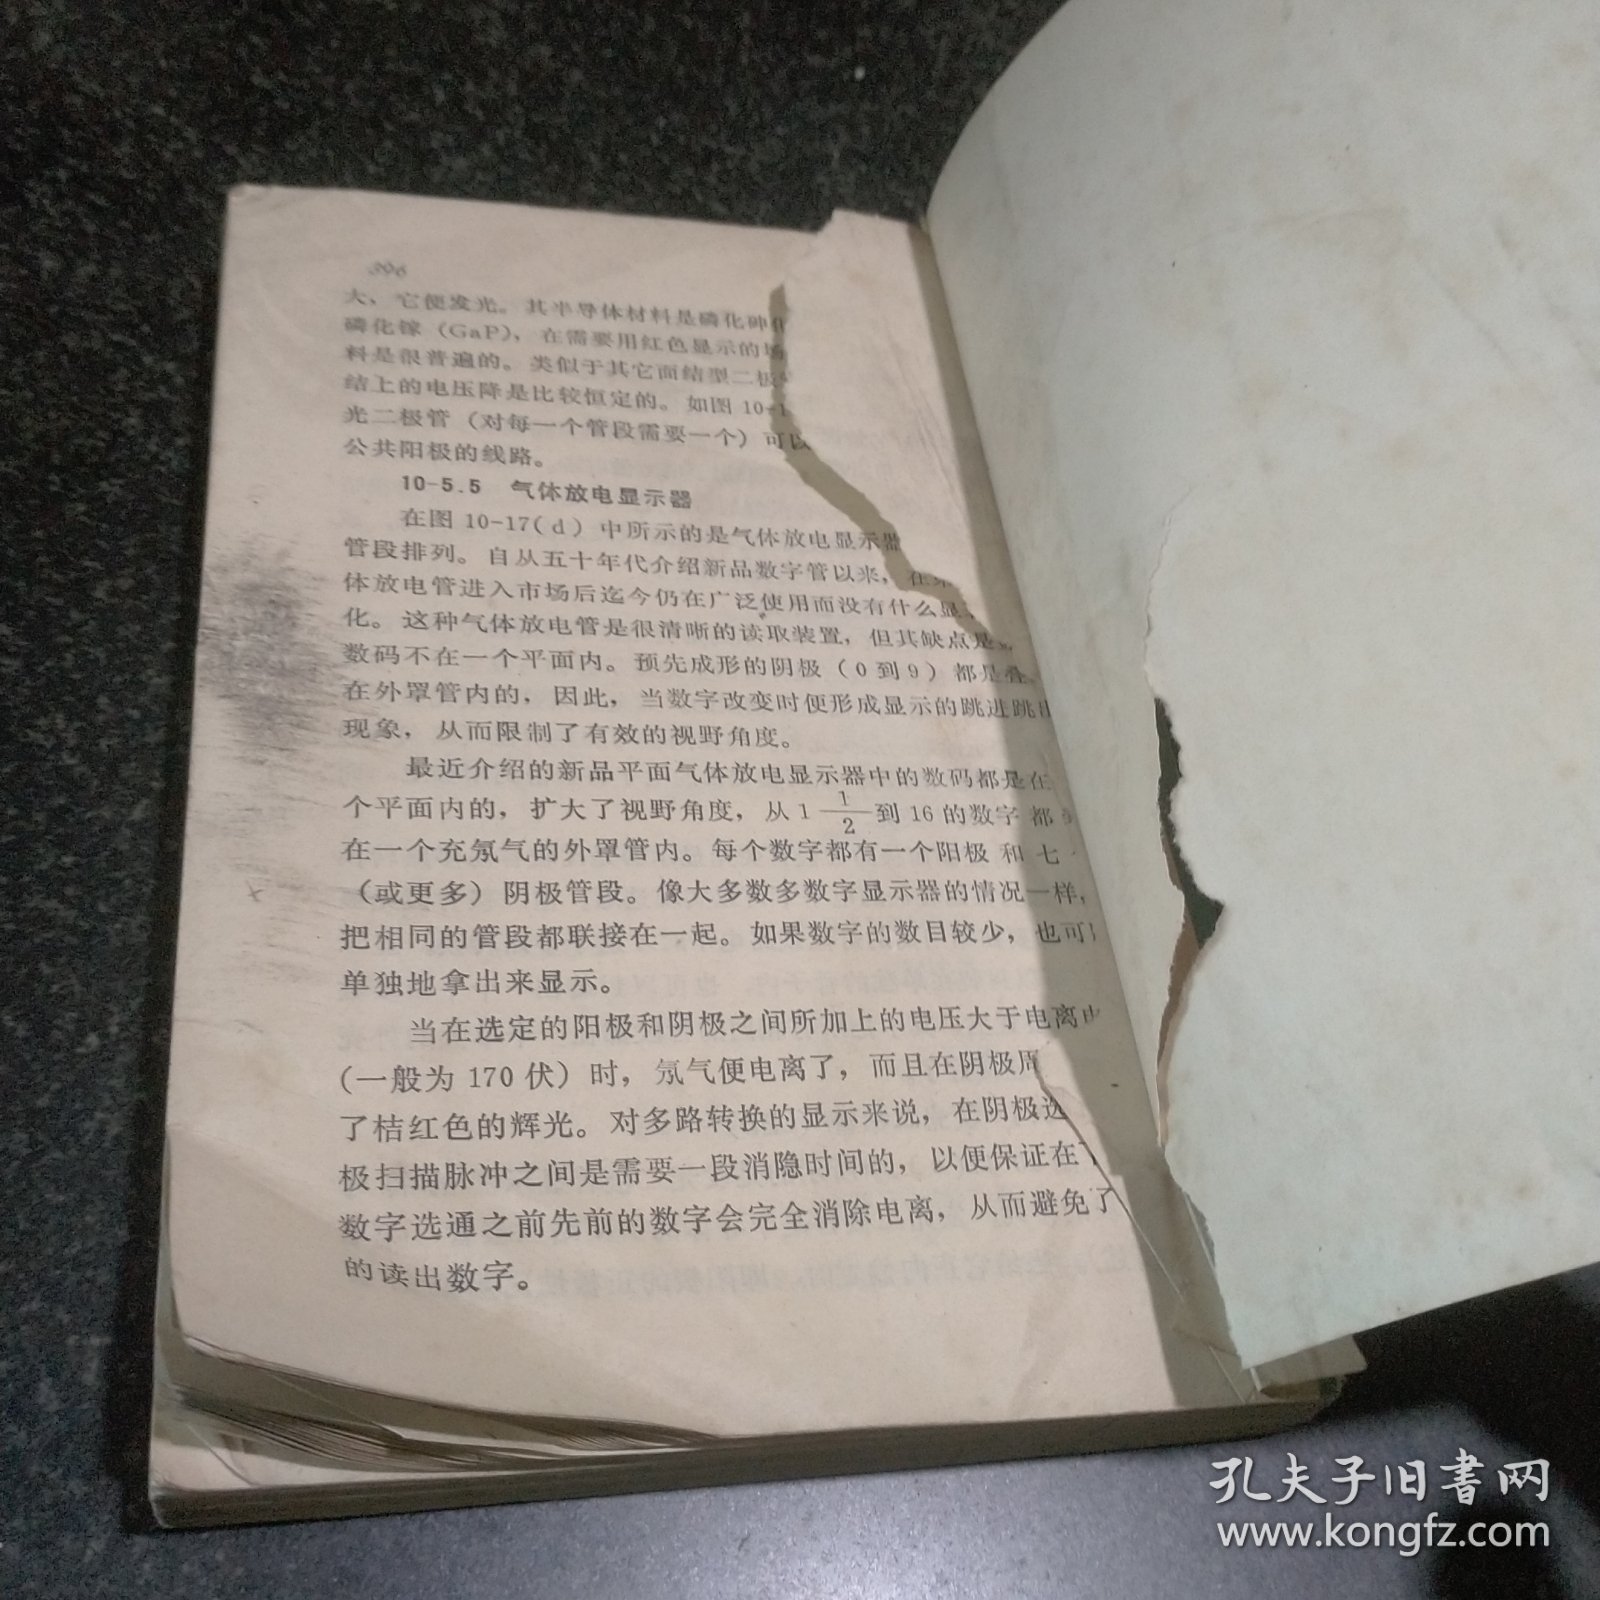 396
大，它便发光。其半导体材料是磷化砷
磷化镓（GaP），在需要用红色显示的场
料是很普遍的。类似于其它面结型二极
结上的电压降是比较恒定的。如图 10-1
光二极管（对每一个管段需要一个）可以
公共阳极的线路。
10-5.5 气体放电显示器
在图 10-17(d) 中所示的是气体放电显示器
管段排列。自从五十年代介绍新品数字管以来，在
体放电管进入市场后迄今仍在广泛使用而没有什么显
化。这种气体放电管是很清晰的读取装置，但其缺点是
数码不在一个平面内。预先成形的阴极（0到9）都是
在外罩管内的，因此，当数字改变时便形成显示的跳进跳
现象，从而限制了有效的视野角度。
最近介绍的新品平面气体放电显示器中的数码都是在
个平面内的，扩大了视野角度，从 1 1/2 到 16 的数字都
在一个充氖气的外罩管内。每个数字都有一个阳极和七
（或更多）阴极管段。像大多数多数字显示器的情况一样，
把相同的管段都联接在一起。如果数字的数目较少，也可
单独地拿出来显示。
当在选定的阳极和阴极之间所加上的电压大于电离
(一般为 170 伏）时，氖气便电离了，而且在阴极周
了桔红色的辉光。对多路转换的显示来说，在阴极选
极扫描脉冲之间是需要一段消隐时间的，以便保证在
数字选通之前先前的数字会完全消除电离，从而避免了
的读出数字。
孔夫子旧书网
www.kongfz.com